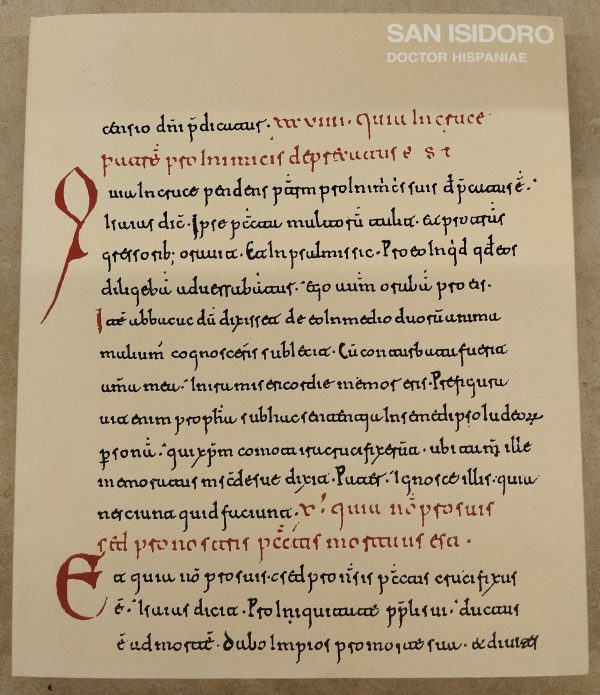 SAN ISIDORO
DOCTOR HISPANIAE
censio dñi p̃dicatus. xxxviiii. Quia In cruce
patrẽ pro Inimicis deprecatus ẽ
Quia In cruce pendens pat̃rm pro Inimc̃s suis dp̃catus ẽ.
Isaias dic̃. Ipse pc̃ta multorũ tulit. Et pro trãs
gressorib; orauit. Et In psalmis sic. Pro eo In qd̃ eos
diligebã aduersabãtur. Ego autm̃ orabã pro eis.
Itẽ abbacuc dũ dixisset de eo In medio duorũ anima
malium cognosceris subIecit. Cũ conturbata fuerit
anĩa mea. In ira misericordie memor eris. Prefigura
uit enim prophtã sub hac sententia In semedipso Iudeorum
p̱sonã. qui xp̃m cum tota ira crucifixerũt. ubi tam̃ ille
memoratus misc̃de sue dixit. Pater. Ignosce illis. quia
nesciunt quid faciunt. xl. quia nõ pro suis
sed pro nostris pcc̃tis mortuus est.
Et quia nõ pro suis. sed pro nsĩs pcc̃tis crucifixus
ẽ. Isaias dicit. Pro Iniquitate pp̃li sui. ductus
ẽ ad mortẽ. dabo Impios pro morte sua. et diuites